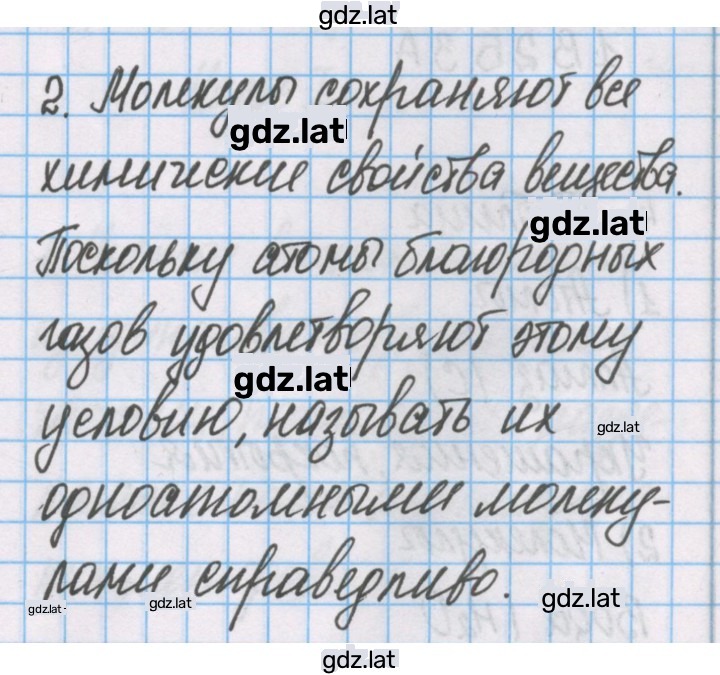 gdz.lat
2. Молекулы сохраняют все
gdz.lat
химические свойства вещества.
gdz.lat
Поскольку атомы благородных
газов удовлетворяют этому
gdz.lat
условию, называть их
gdz.lat
одноатомными молеку-
лами справедливо.
gdz.lat
gdz.lat
gdz.lat
gdz.lat